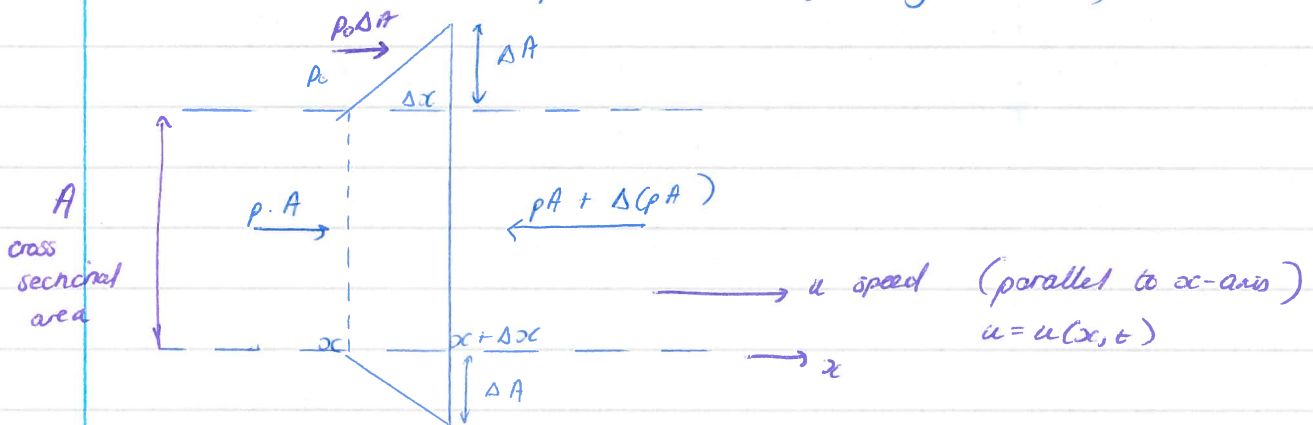 p₀ΔA
p₀
ΔA
Δx
A
cross
sectional
area
p · A
pA + Δ(pA)
u speed (parallel to x-axis)
u = u(x, t)
x
x + Δx
x
ΔA